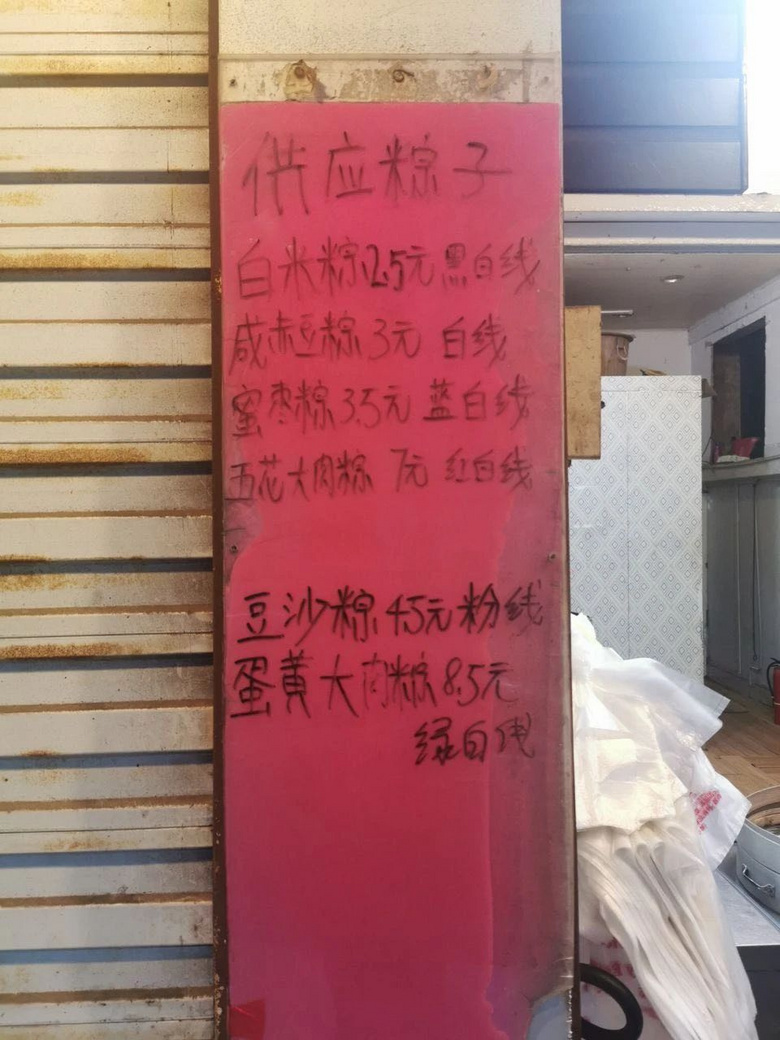 供应粽子
白米粽2.5元黑白线
咸赤豆粽3元 白线
蜜枣粽3.5元 蓝白线
五花大肉粽 7元 红白线
豆沙粽4.5元粉线
蛋黄大肉粽8.5元
绿白线